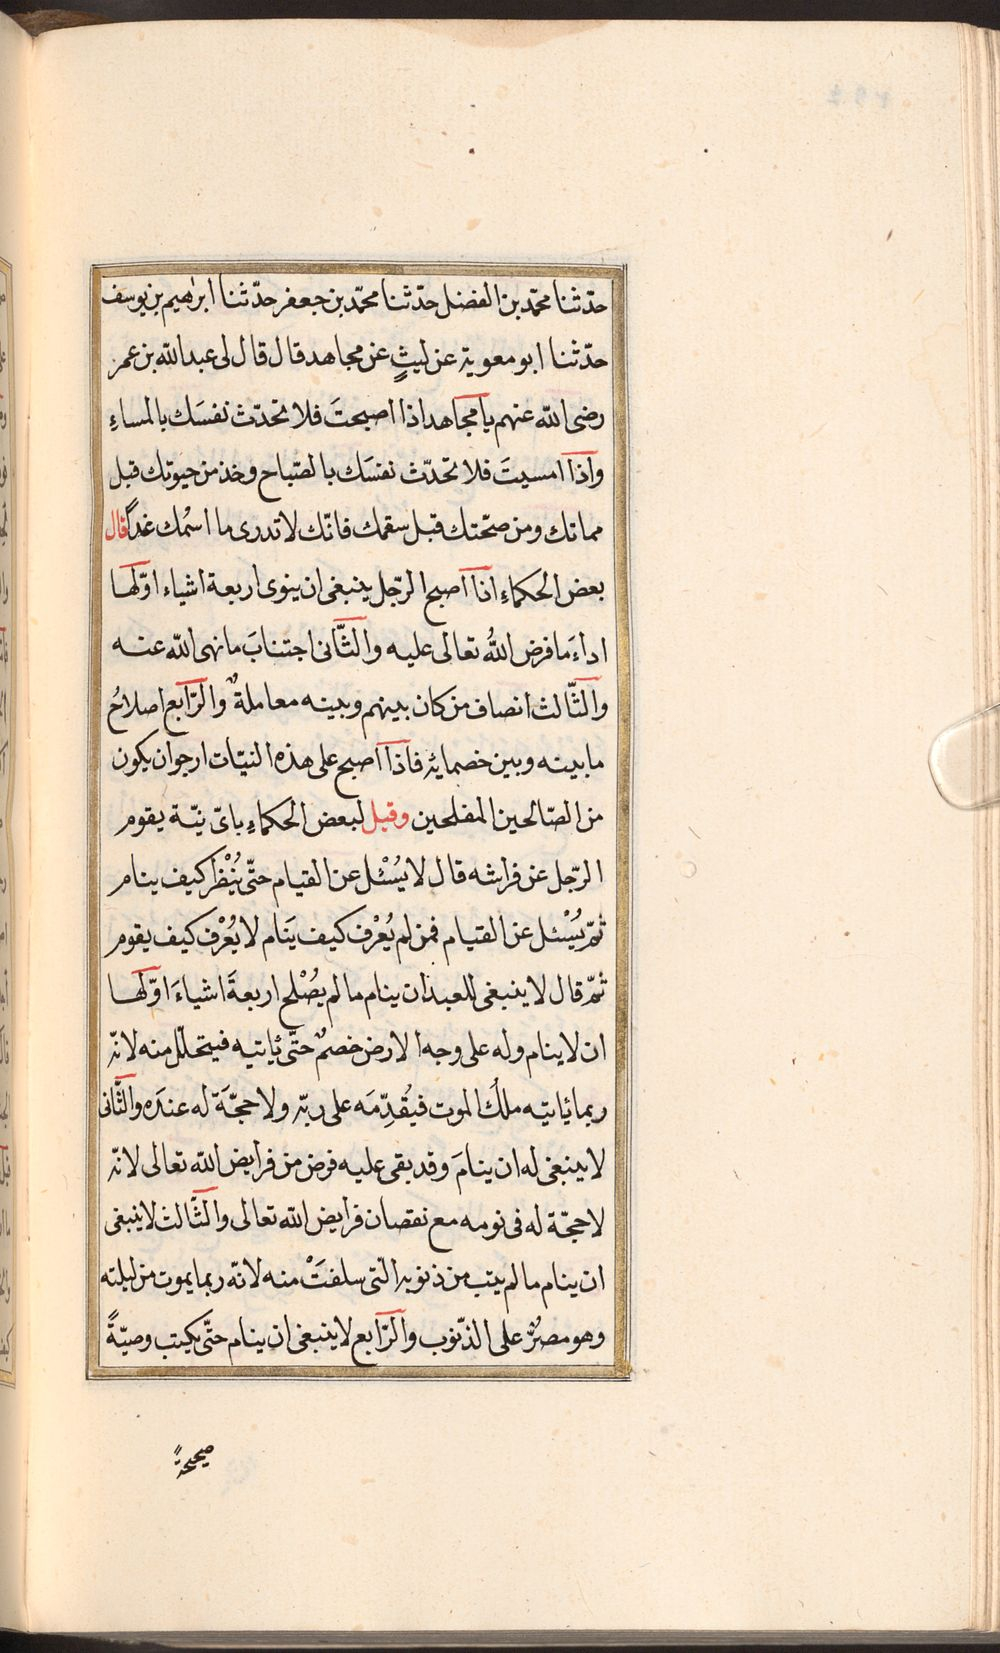 حدّثنا محمّد بن الفضل حدّثنا محمّد بن جعفر حدّثنا ابراهيم بن يوسف
حدّثنا ابو معوية عن ليثٍ عن مجاهد قال قال لى عبد الله بن عمر
رضى الله عنهم يا مجاهد اذا اصبحتَ فلا تحدّث نفسَك بالمساءِ
واذا امسيتَ فلا تحدّث نفسَك بالصّباح وخذ من حيوتك قبل
مماتك ومن صحّتك قبل سقمك فانّك لا تدرى ما اسْمك غداً قال
بعض الحكماءِ اذا اصبح الرّجل ينبغى ان ينوى اربعة اشياء اوّلها
اداءَ ما فرض اللهُ تعالى عليه والثّانى اجتنابَ ما نهى الله عنه
والثّالث انصاف من كان بينهم وبينه معاملةٌ والرّابع اصلاحُ
ما بينه وبين خصمائه فاذا اصبح على هذه النيّات ارجو ان يكون
من الصّالحين المفلحين وقيل لبعض الحكماءِ باىّ نيّة يقوم
الرّجل عن فراشه قال لا يُسْئل عن القيام حتّى يُنْظر كيف ينام
ثمّ يُسْئل عن القيام فمن لم يُعْرف كيف يَنام لا يُعْرف كيف يقوم
ثمّ قال لا ينبغى للعبد ان ينام ما لم يصْلح اربعةَ اشياءَ اوّلها
ان لا ينام وله على وجه الارض خصمٌ حتّى يأتيه فيتحلّل منه لانّه
ربما يأتيه ملكُ الموت فيُقدِّمَه على ربّه ولا حجّةَ له عندَه والثّانى
لا ينبغى له ان ينامَ وقد بقى عليه فرض من فرايض الله تعالى لانّه
لا حجّة له فى نومه مع نقصان فرايض الله تعالى والثّالث لا ينبغى
ان ينام ما لم يتب من ذنوبه التى سلفتْ منه لانّه ربما يموت من ليلته
وهو مصرٌّ على الذّنوب والرّابع لا ينبغى ان ينام حتّى يكتب وصيّةً
صحيحةً